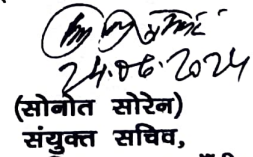 24.06.2024
(सोनोत सोरेन)
संयुक्त सचिव,